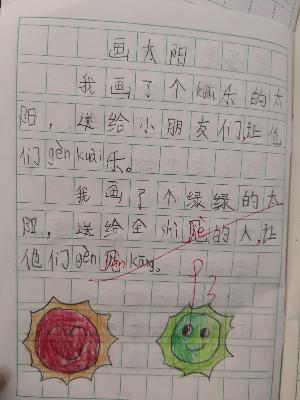 画太阳
我画了个kuài乐的太
阳，送给小朋友们，让他
们gèn kuài乐。
我画了个绿绿的太
阳，送给全shì jiè的人，让
他们gèn jiàn kāng。